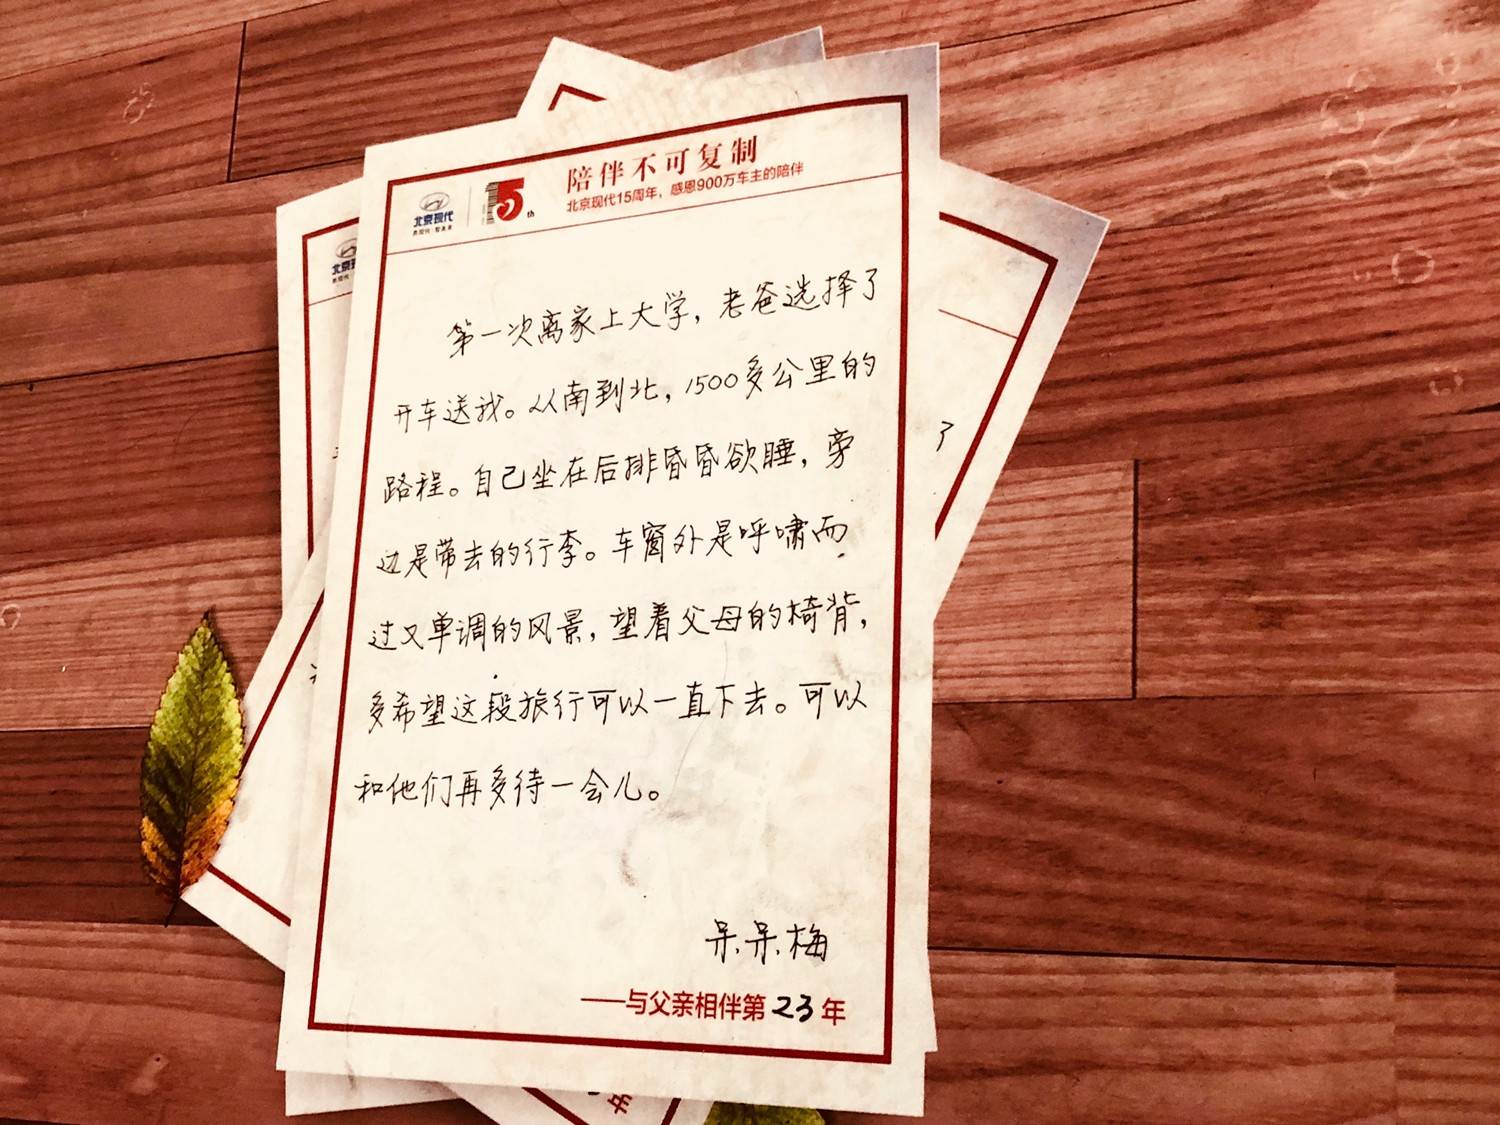 陪伴不可复制
北京现代15周年，感恩900万车主的陪伴
北京现代
15th
第一次离家上大学，老爸选择了
开车送我。从南到北，1500多公里的
路程。自己坐在后排昏昏欲睡，旁
边是带去的行李。车窗外是呼啸而
过又单调的风景，望着父母的椅背，
多希望这段旅行可以一直下去。可以
和他们再多待一会儿。
呆呆梅
——与父亲相伴第23年